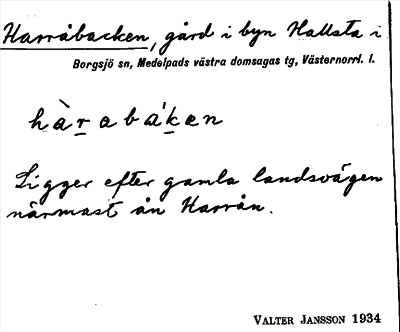 Harråbacken, gård i byn Hallsta i
Borgsjö sn, Medelpads västra domsagas tg, Västernorrl. l.
hàrabáken
Ligger efter gamla landsvägen
närmast ån Harrån.
VALTER JANSSON 1934